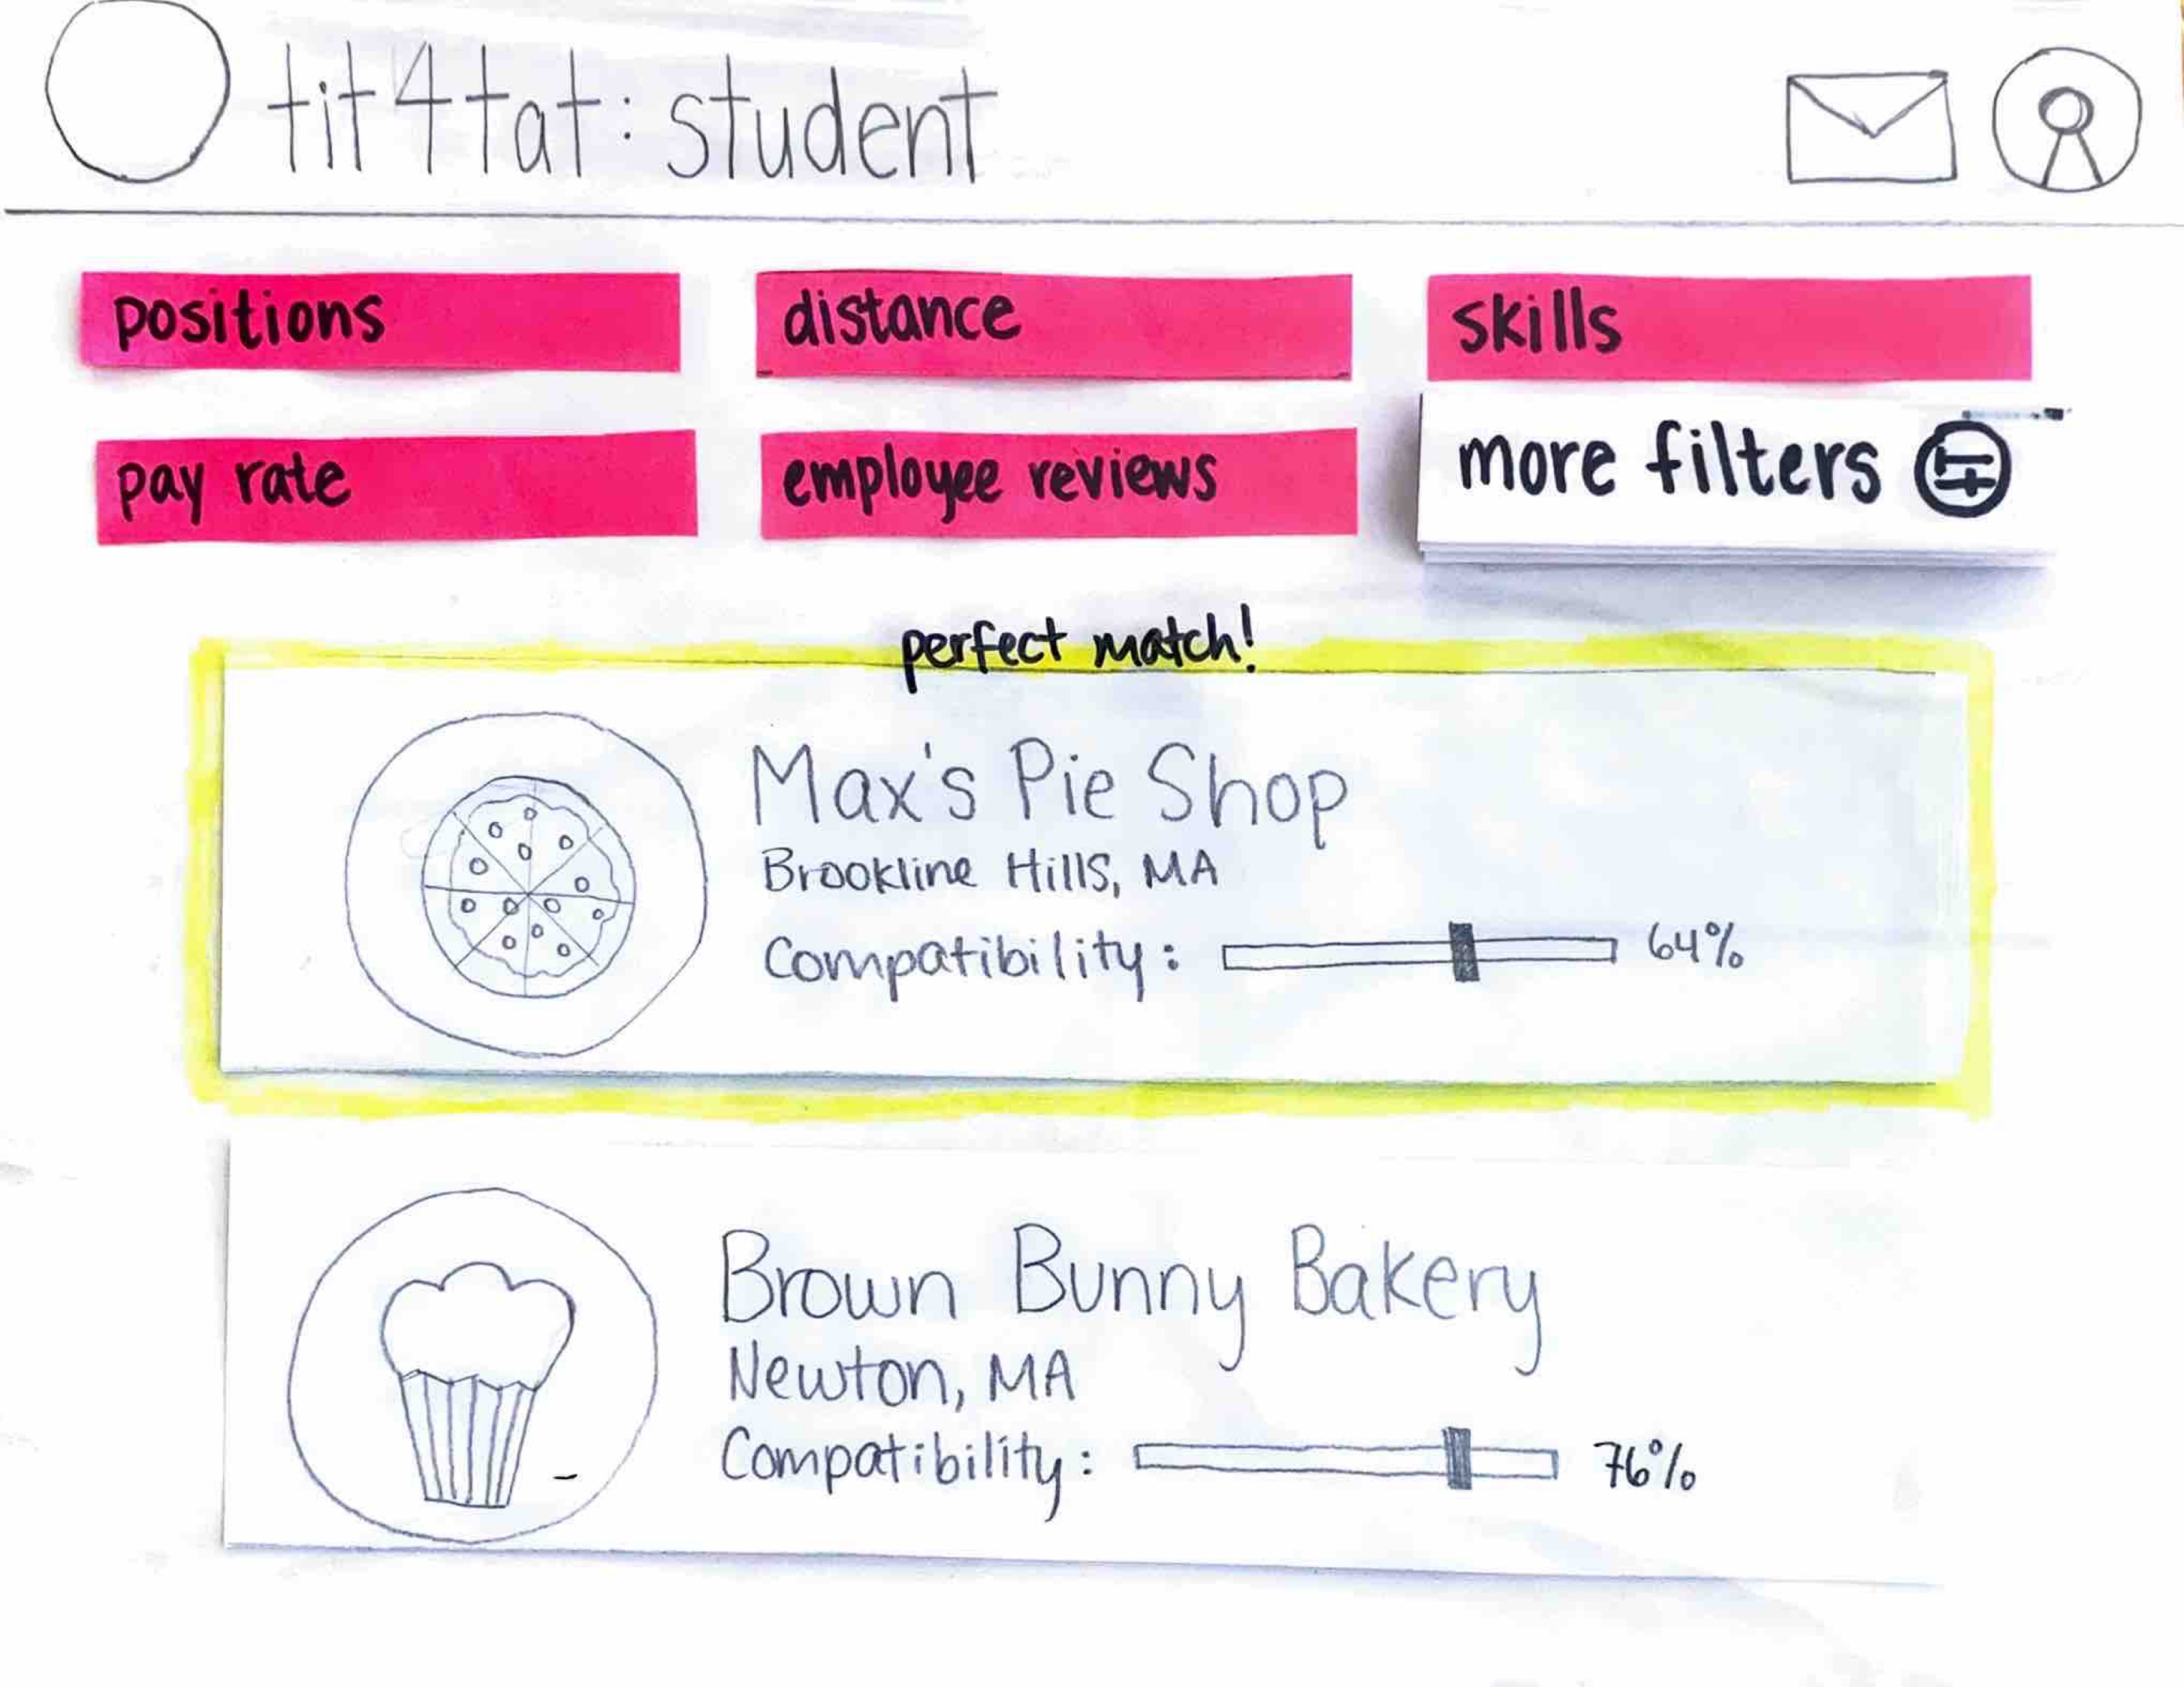 tit4tat: student
positions
distance
skills
pay rate
employee reviews
more filters
perfect match!
Max's Pie Shop
Brookline Hills, MA
Compatibility: 64%
Brown Bunny Bakery
Newton, MA
Compatibility: 76%